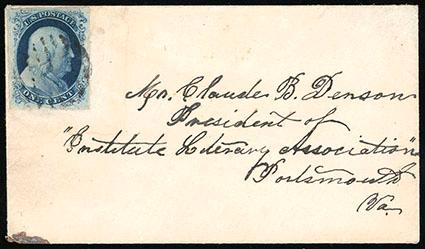 U.S. POSTAGE
ONE CENT.
Mr. Claude B. Denson
President of
"Institute Literary Association"
Portsmouth
Va.